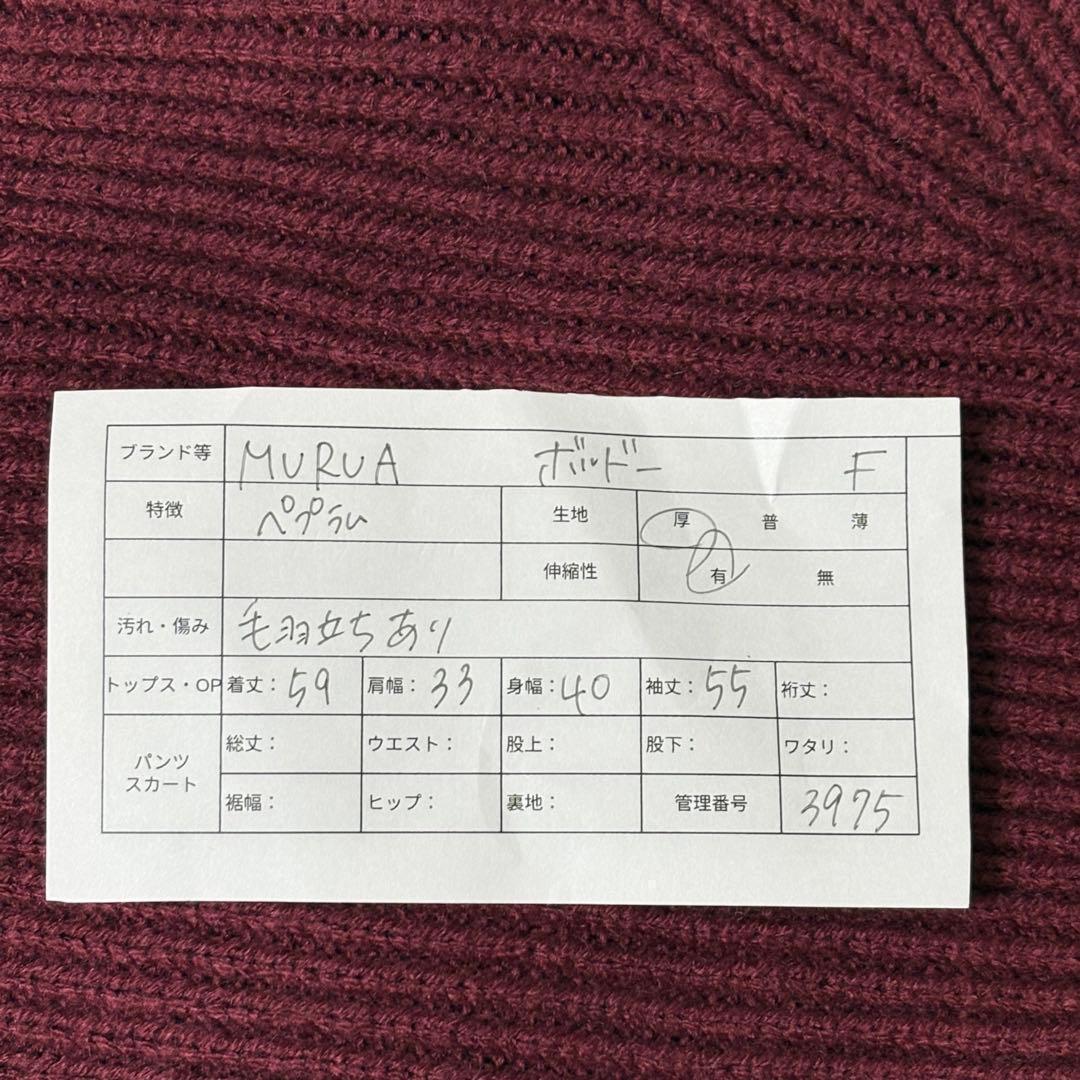 ブランド等 MURUA ボルドー F
特徴 ペプラム 生地 厚 普 薄
伸縮性 有 無
汚れ・傷み 毛羽立ちあり
トップス・OP 着丈：59 肩幅：33 身幅：40 袖丈：55 裄丈：
パンツ
スカート
総丈： ウエスト： 股上： 股下： ワタリ：
裾幅： ヒップ： 裏地： 管理番号 3975